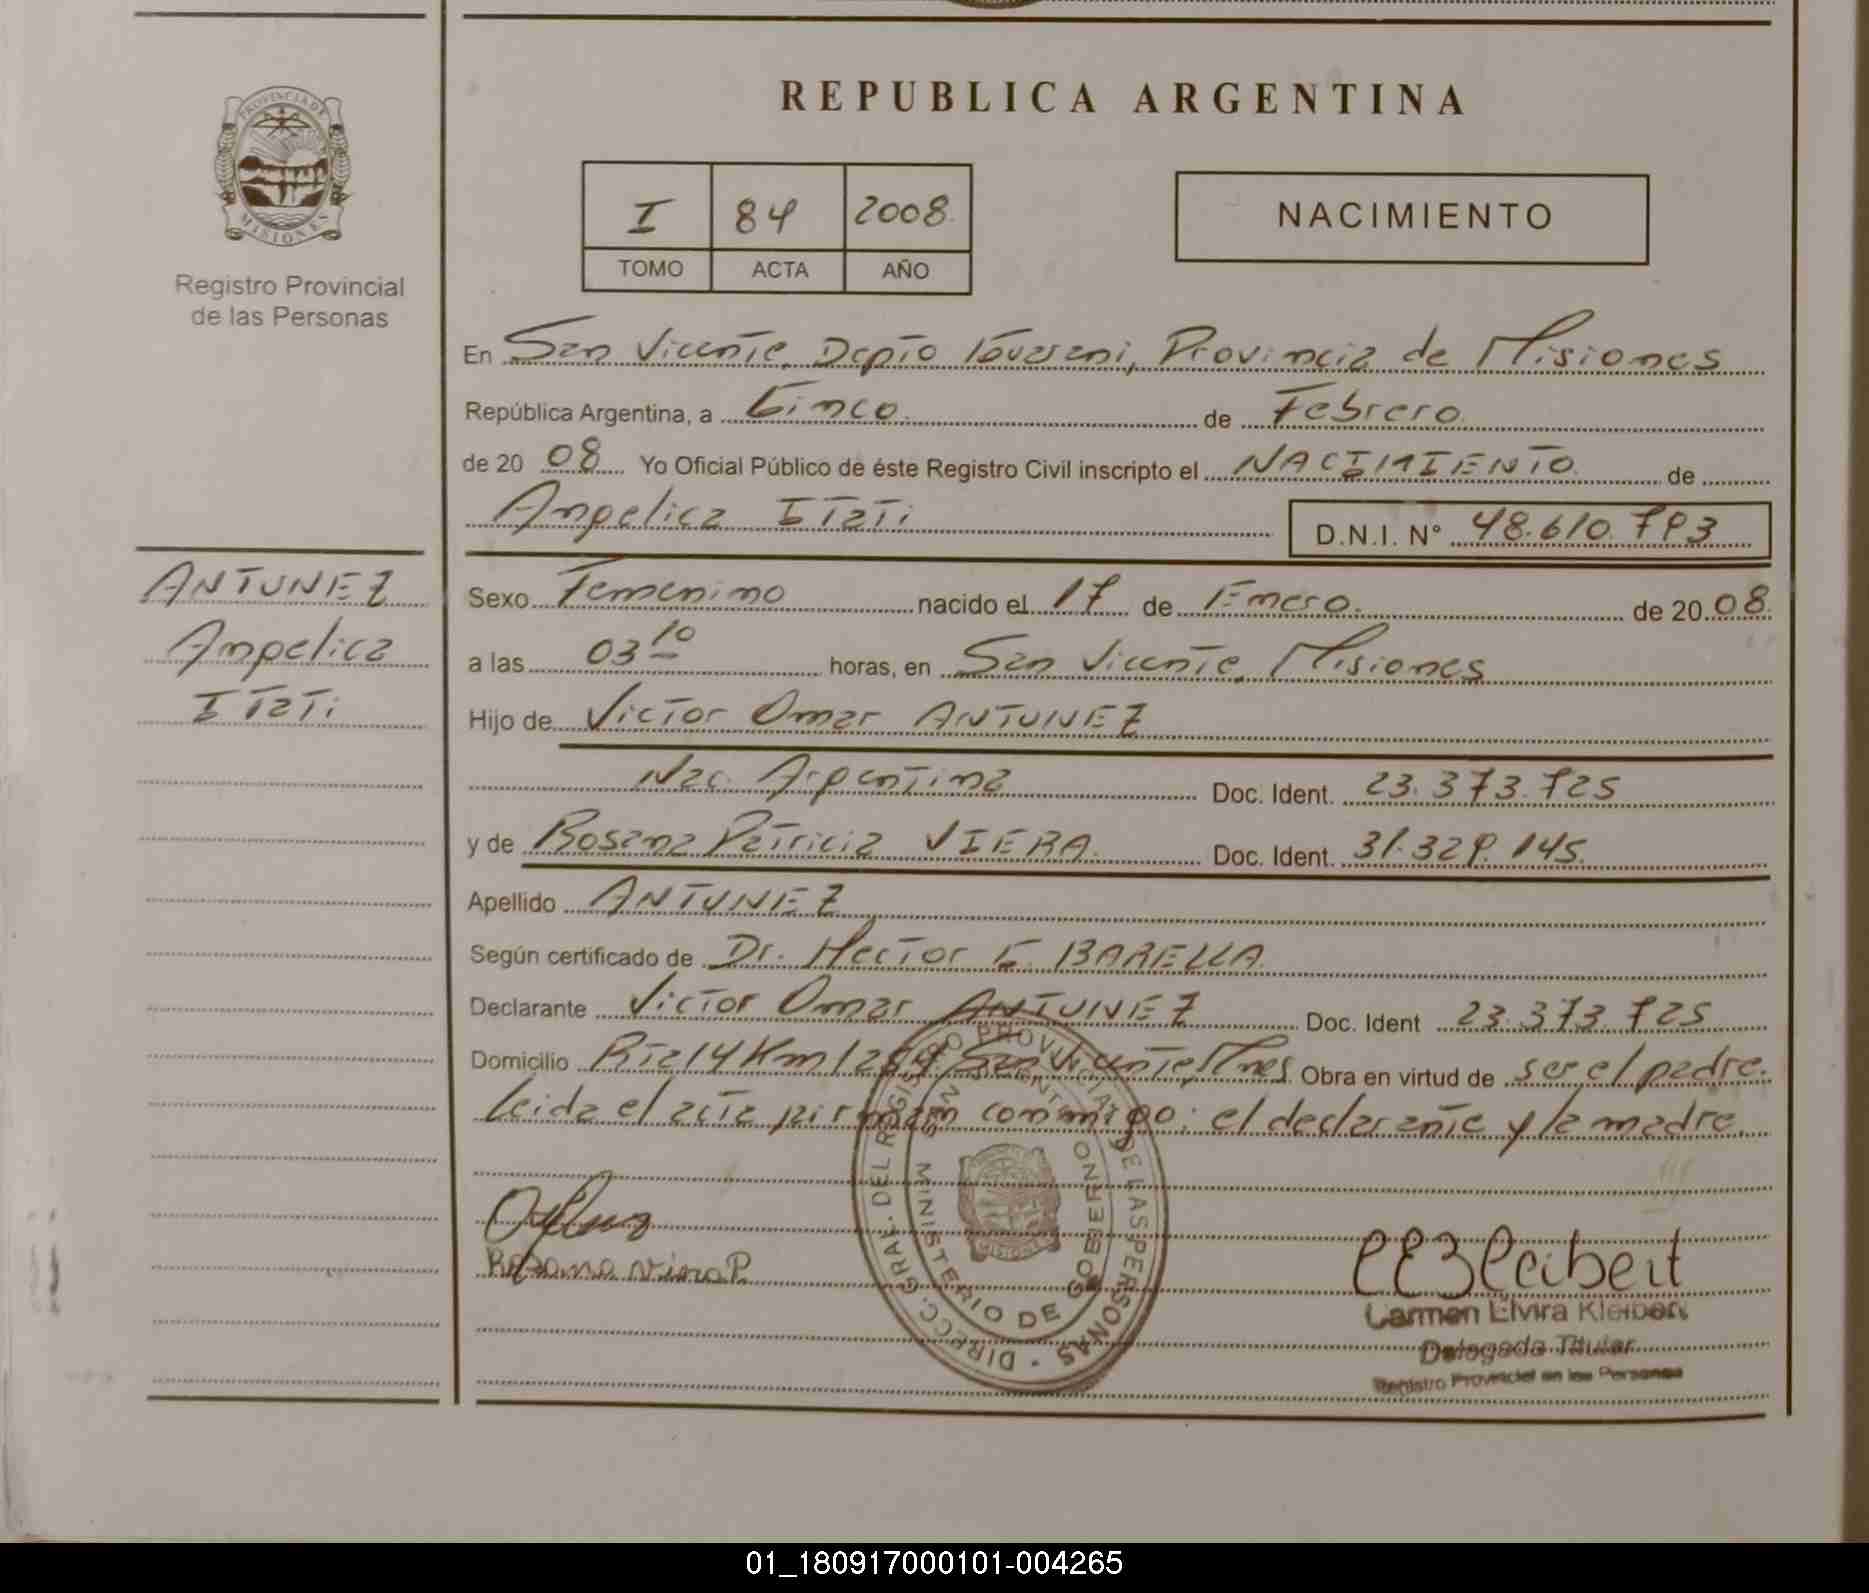 PROVINCIA DE
MISIONES
Registro Provincial
de las Personas
ANTUNEZ
Angelica
ITaTi
REPUBLICA ARGENTINA
I 84 2008
TOMO ACTA AÑO
NACIMIENTO
En San Vicente, Depto Guarani, Provincia de Misiones
República Argentina, a Cinco de Febrero
de 20 08 Yo Oficial Público de éste Registro Civil inscripto el NACIMIENTO de
Angelica ITaTi D.N.I. Nº 48.610.793
Sexo Femenino nacido el 17 de Enero de 20 08
a las 03 10 horas, en San Vicente, Misiones
Hijo de Victor Omar ANTUNEZ
Nac. Argentina Doc. Ident. 23.373.725
y de Rosana Patricia VIERA Doc. Ident. 31.329.145
Apellido ANTUNEZ
Según certificado de Dr. Hector E. BARELLA
Declarante Victor Omar ANTUNEZ Doc. Ident 23.373.725
Domicilio Rta 14 Km 1264 San Vicente, Mnes Obra en virtud de ser el padre.
Leida el acta firman conmigo: el declarante y la madre.
DIRECC. GRAL. DEL REGISTRO PROVINCIAL DE LAS PERSONAS
MINISTERIO DE GOBIERNO
SAN VICENTE
MISIONES
Rosana Viera P
Carmen Elvira Kleibert
Delegada Titular
Registro Provincial de las Personas
01_180917000101-004265